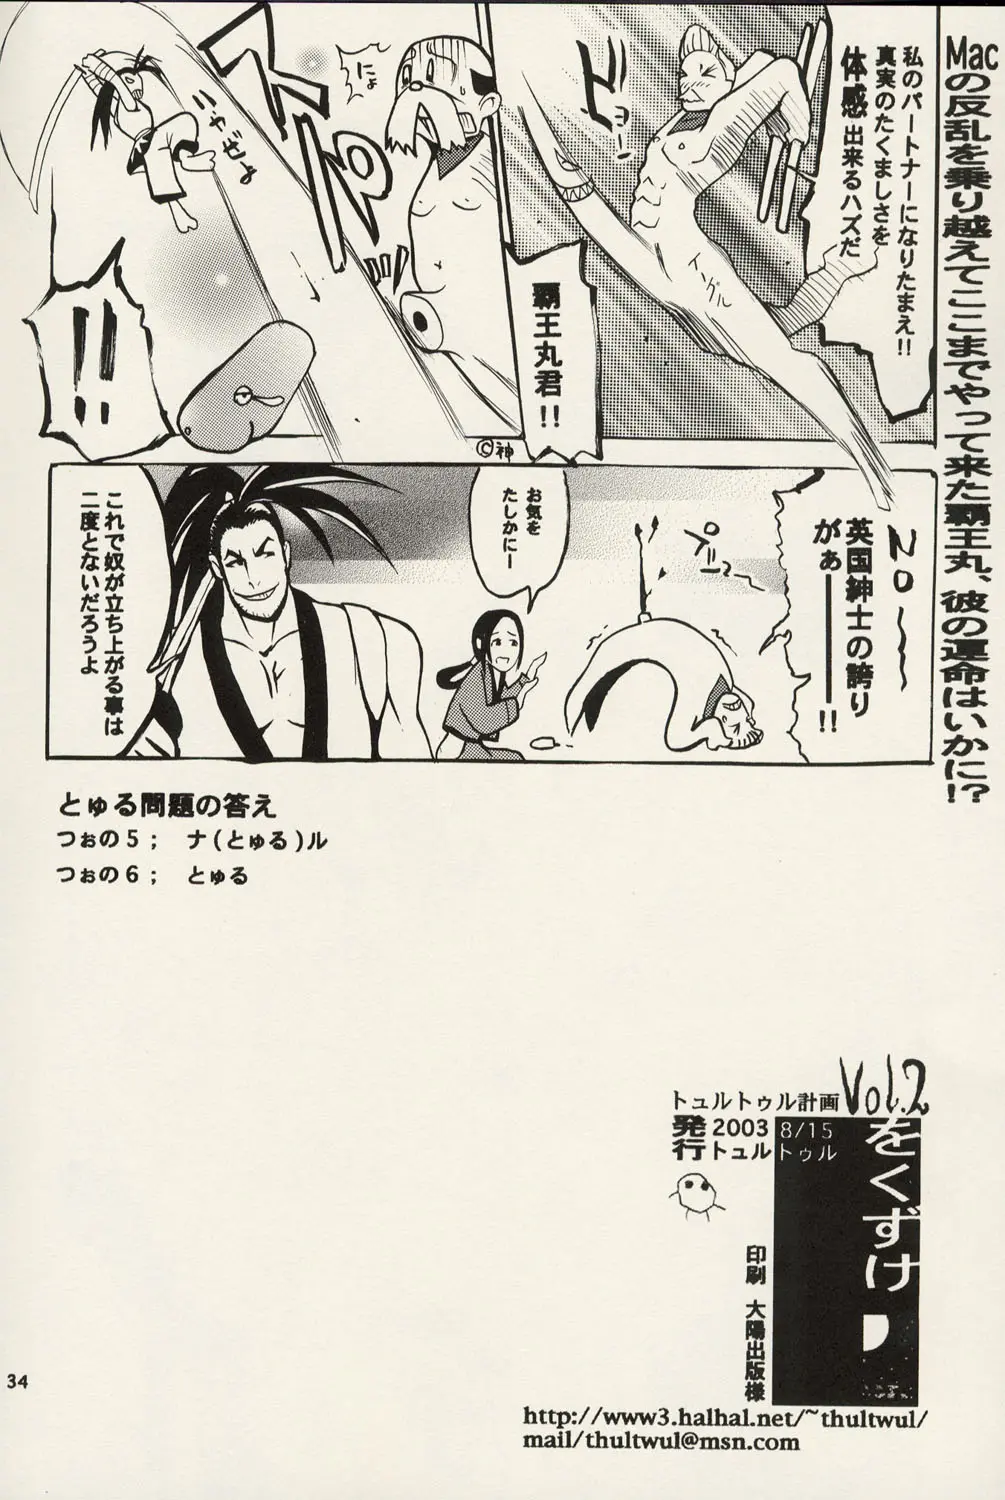 Macの反乱を乗り越えてここまでやって来た覇王丸、彼の運命はいかに!?
私のパートナーになりたまえ!!
真実のたくましさを
体感出来るハズだ
ビシ
イーグル
覇王丸君!!
にょ
ズパ
ハャぜょ
!!
©神
NO〜
英国紳士の誇り
がぁーー!!
プリ
お気を
たしかにー
これで奴が立ち上がる事は
二度とないだろうよ
とゅる問題の答え
つぉの5; ナ(とゅる)ル
つぉの6; とゅる
トュルトゥル計画 Vol.2
をくずけ
発行
2003 8/15
トュルトゥル
印刷 大陽出版様
http://www3.halhal.net/~thultwul/
mail/thultwul@msn.com
34